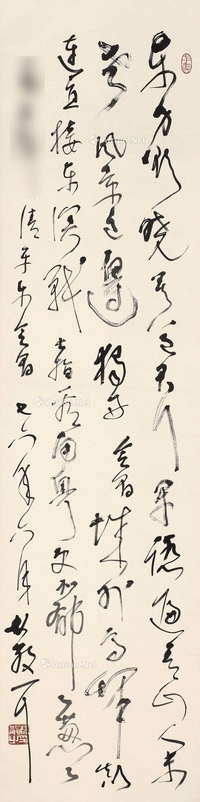 東方欲曉莫道君行早踏遍青山人未
老風景這邊獨好會昌城外高峰顛
連直接東溟戰士指看南粤更加郁郁葱葱
清平樂會昌 七六年六月 林散耳